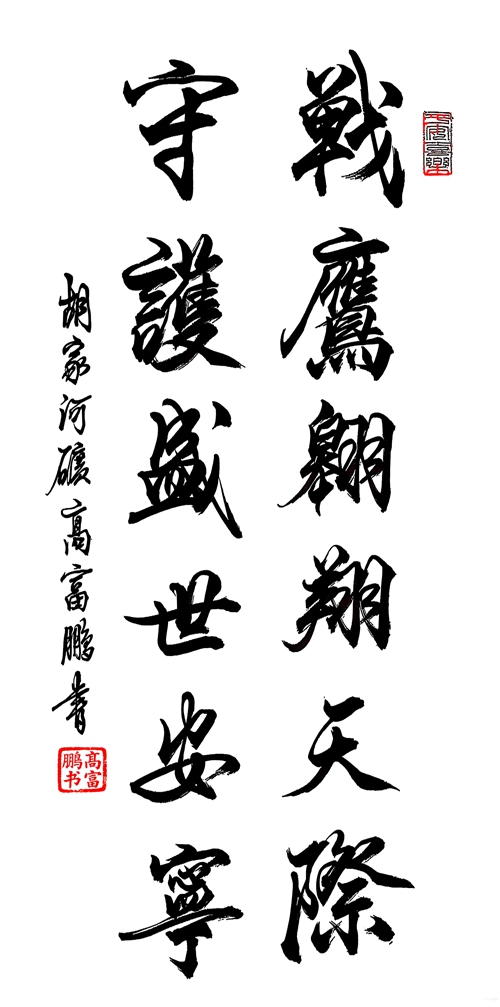 戰鷹翱翔天際
守護盛世安寧
胡家河礦高富鵬書
高富
鹏书